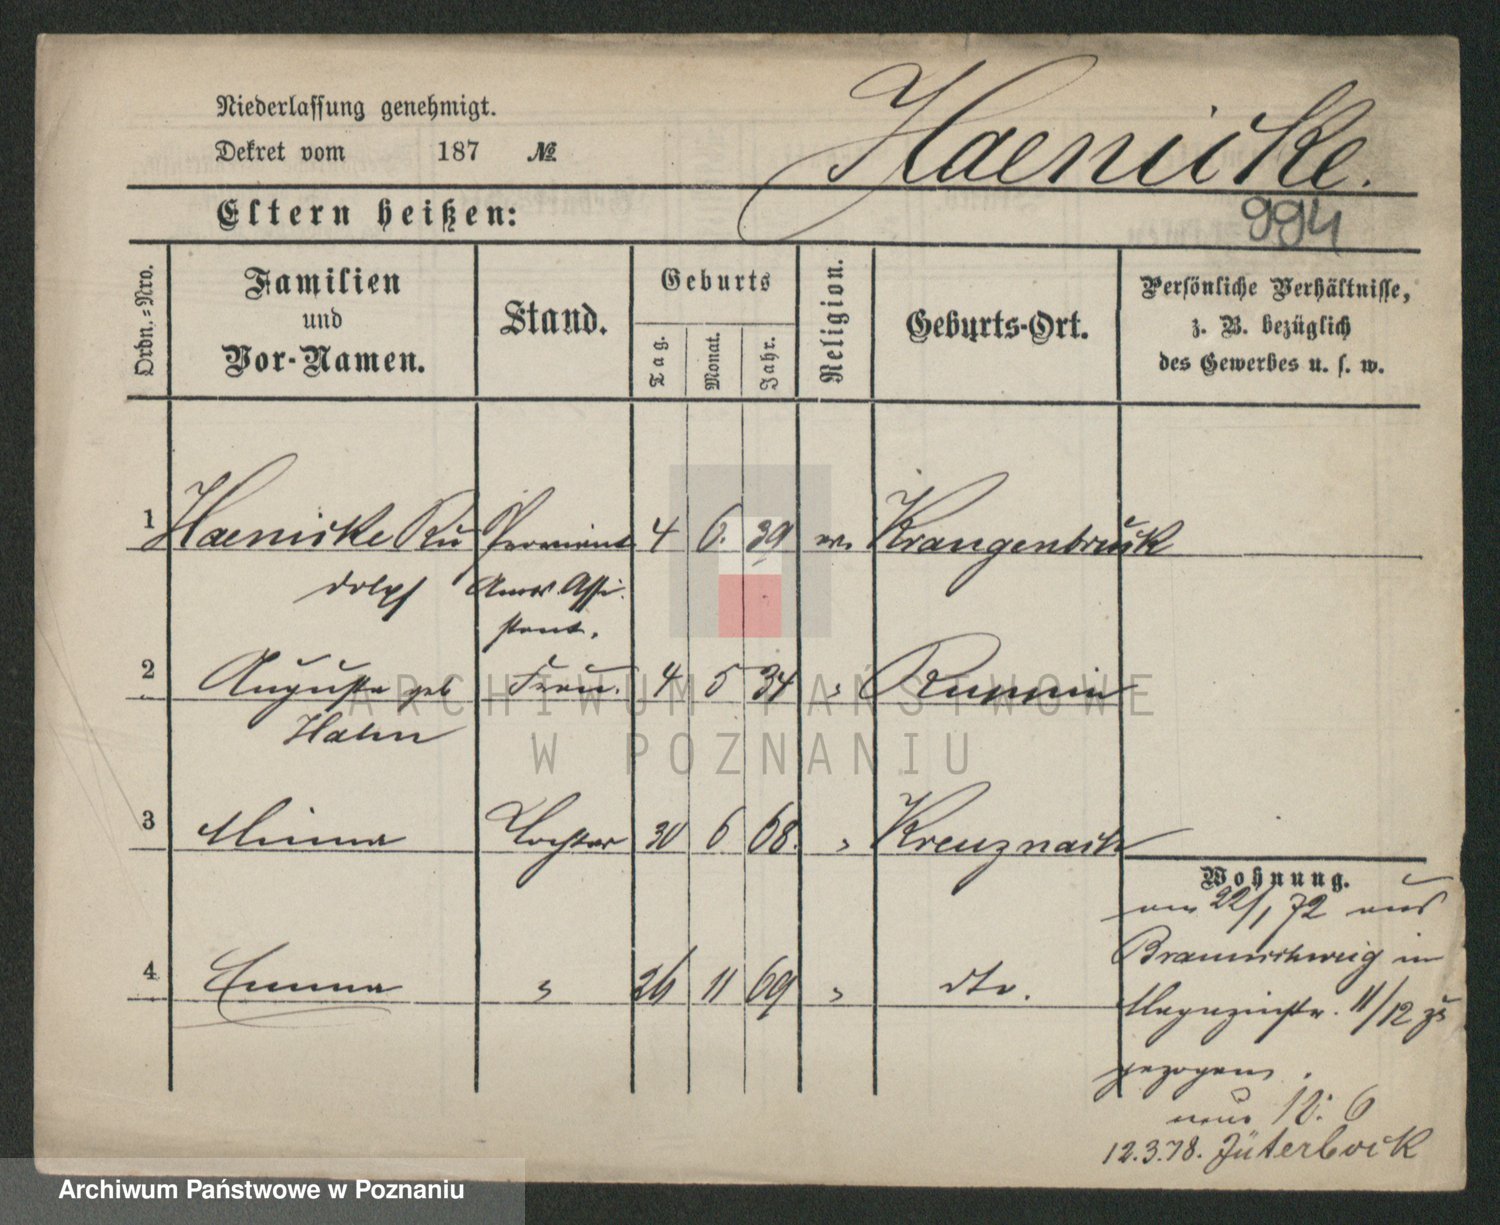 Niederlassung genehmigt.
Haenicke.
Dekret vom 187 №
Eltern heißen:
994
Ordn.=Nro.
Familien
und
Vor-Namen.
Stand.
Geburts
Tag.
Monat.
Jahr.
Religion.
Geburts-Ort.
Persönliche Verhältnisse,
z. B. bezüglich
des Gewerbes u. s. w.
1 Haenicke Ru Proviant 4 6. 39 ev. Krangenbruck
dolph Amts Assi
stent.
2 Auguste geb Frau. 4 5 34 " Ruppin
Hahn
3 Minna Tochter 30 6 68. " Kreuznach
Wohnung.
am 22/1 72 aus
Braunschweig in
4 Emma " 26 11 69 " dto.
Magazinstr. 11/12 zu
gezogen.
neue 12: 6
12.3.78. Jüterbock
ARCHIWUM PAŃSTWOWE
W POZNANIU
Archiwum Państwowe w Poznaniu